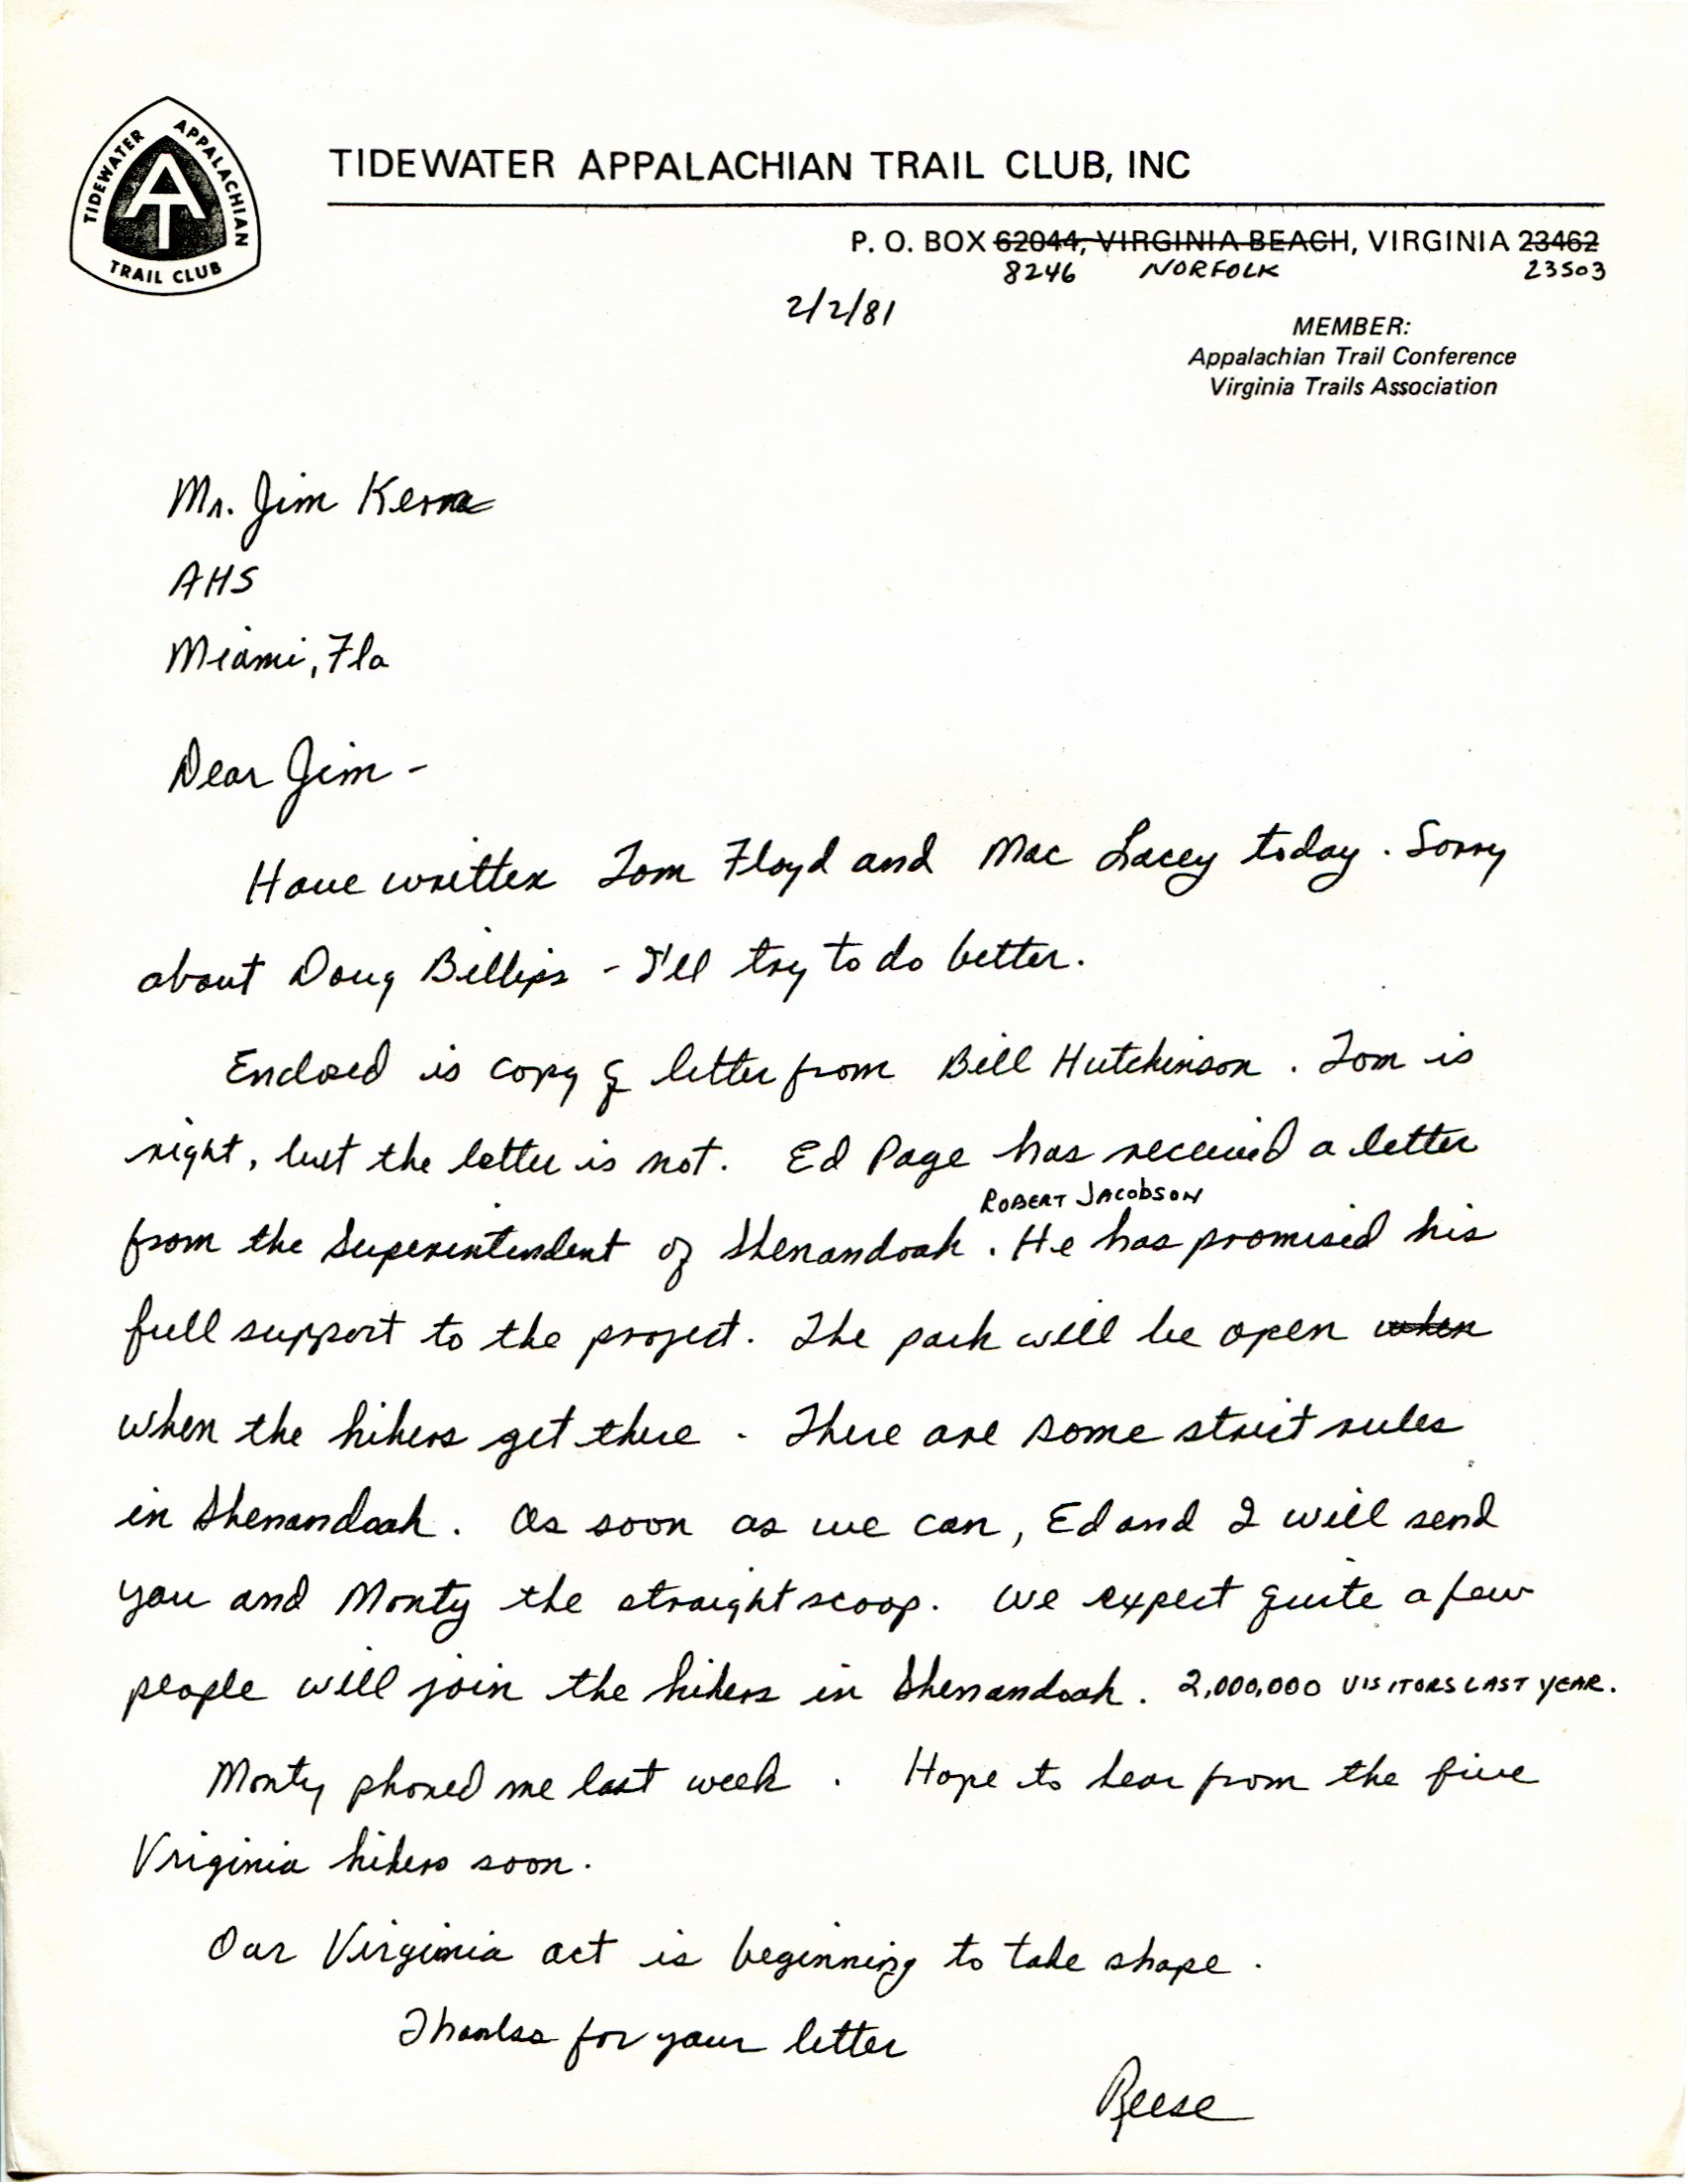 TIDEWATER APPALACHIAN
AT
TRAIL CLUB
TIDEWATER APPALACHIAN TRAIL CLUB, INC
P. O. BOX 62044, VIRGINIA BEACH, VIRGINIA 23462
8246 NORFOLK 23503
2/2/81
MEMBER:
Appalachian Trail Conference
Virginia Trails Association
Mr. Jim Kern
AHS
Miami, Fla
Dear Jim -
Have written Tom Floyd and Mac Lacey today. Sorry
about Doug Billips - I'll try to do better.
Enclosed is copy of letter from Bill Hutchinson. Tom is
right, but the letter is not. Ed Page has received a letter
ROBERT JACOBSON
from the Superintendent of Shenandoah. He has promised his
full support to the project. The park will be open when
when the hikers get there. There are some strict rules
in Shenandoah. As soon as we can, Ed and I will send
you and Monty the straight scoop. We expect quite a few
people will join the hikers in Shenandoah. 2,000,000 VISITORS LAST YEAR.
Monty phoned me last week. Hope to hear from the five
Virginia hikers soon.
Our Virginia act is beginning to take shape.
Thanks for your letter
Reese